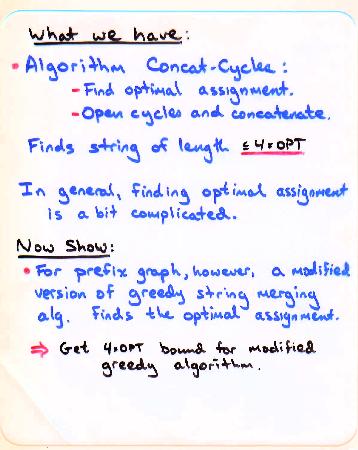 What we have:
• Algorithm Concat-Cycles:
- Find optimal assignment.
- Open cycles and concatenate.
Finds string of length ≤ 4*OPT
In general, finding optimal assignment
is a bit complicated.
Now Show:
• For prefix graph, however, a modified
version of greedy string merging
alg. finds the optimal assignment.
⇒ Get 4*OPT bound for modified
greedy algorithm.